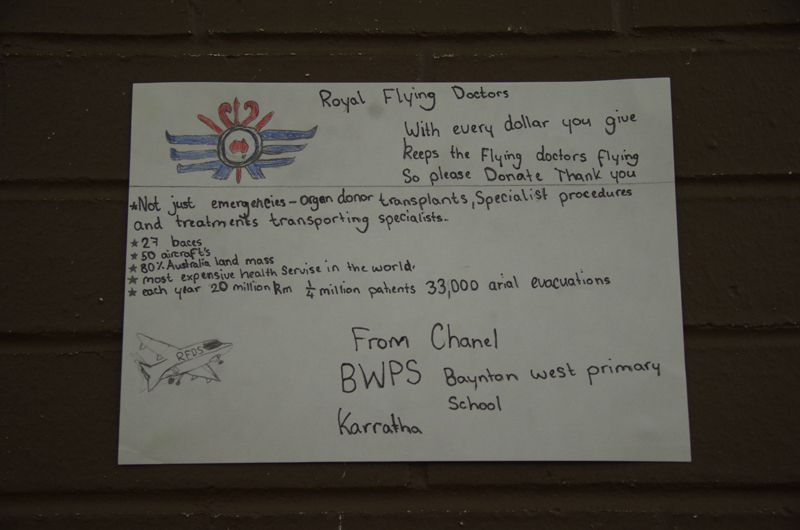 Royal Flying Doctors
With every dollar you give
keeps the Flying doctors flying
So please Donate Thank you
*Not just emergencies - organ donor transplants, Specialist procedures
and treatments transporting specialists..
* 27 baces
* 50 aircraft's
* 80% Australia land mass
* most expensive health Servise in the world.
* each year 20 million km 1/4 million patients 33,000 arial evacuations
RFDS
From Chanel
BWPS Baynton west primary
School
Karratha